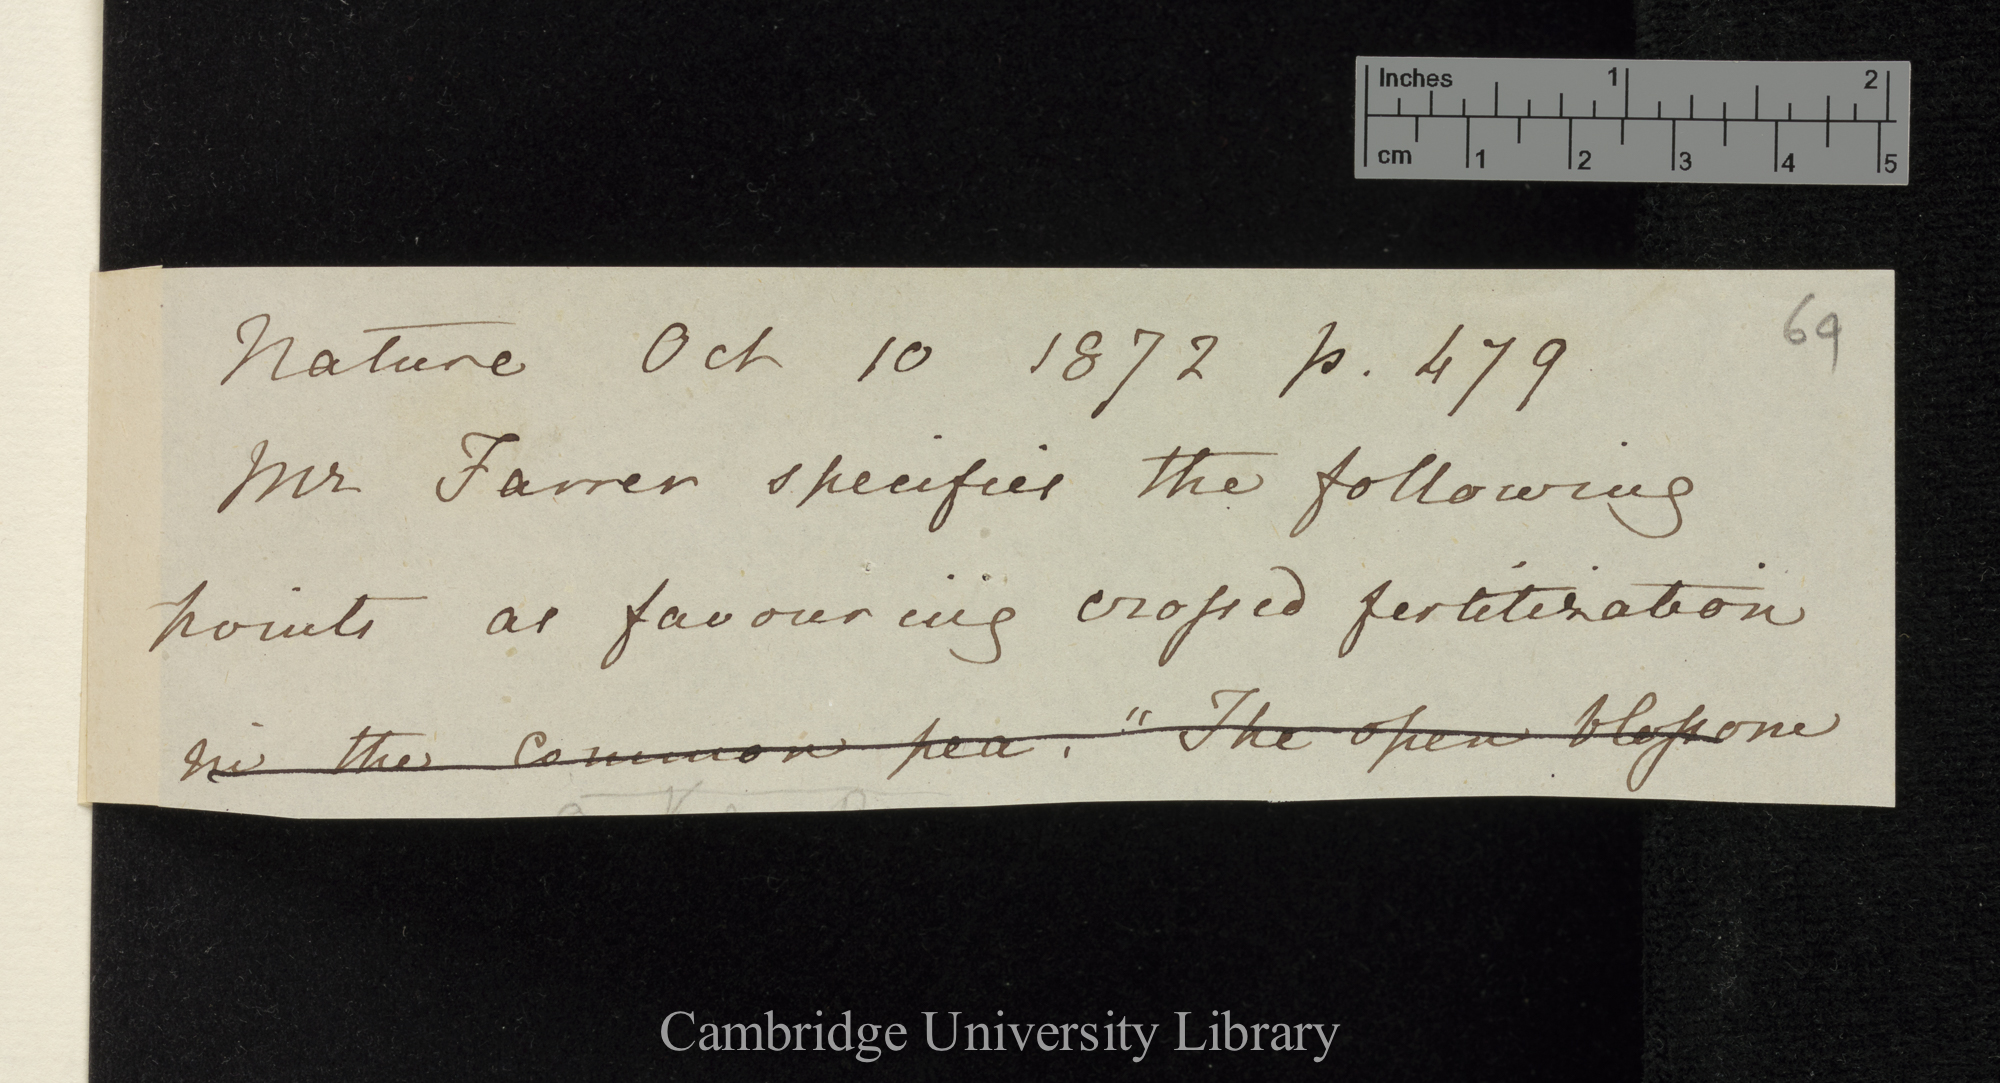 Inches 1 2
cm 1 2 3 4 5
69
Nature Oct 10 1872 p. 479
Mr Farrer specifies the following
points as favouring crossed fertilization
in the common pea. "The open blossom
Cambridge University Library